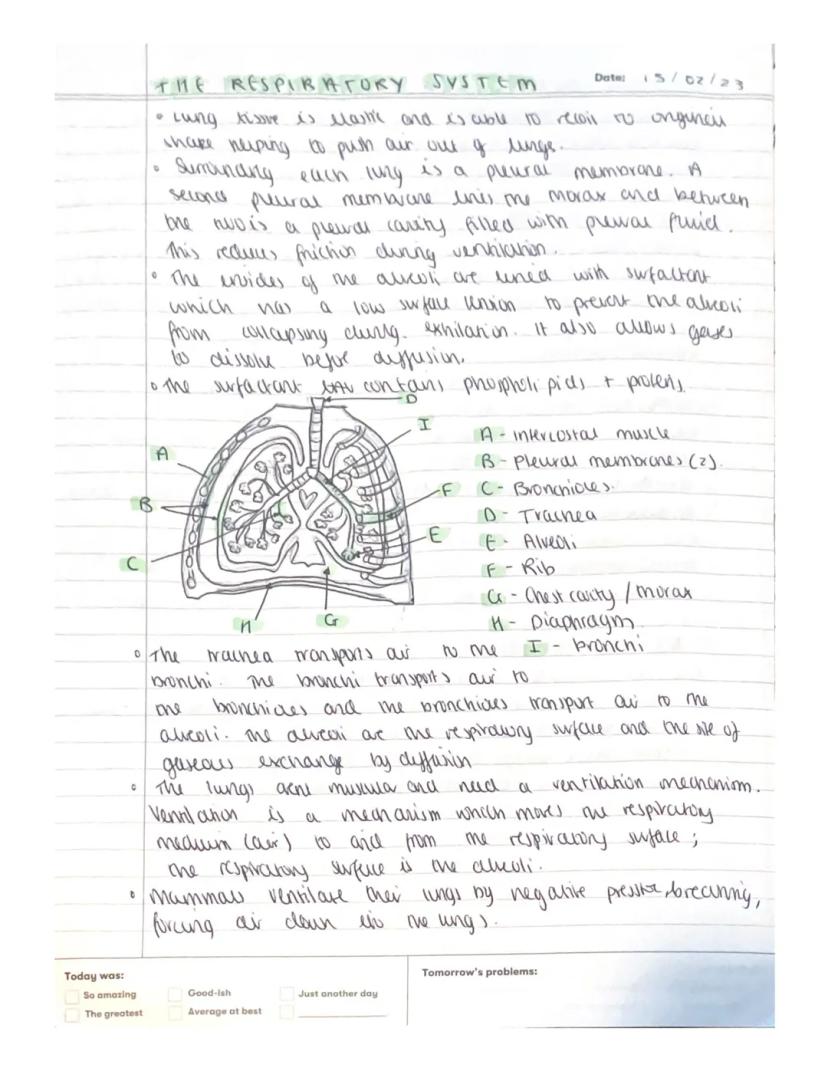 THE RESPIRATORY SYSTEM Date: 15/02/23
• Lung tissue is elastic and is able to recoil to
shape helping to push air out of lungs.
• Surrounding each lung is a pleural membrane. A
second pleural membrane lines the thorax and between
the two is a pleural cavity filled with pleural fluid.
This reduces friction during ventilation.
• The insides of the alveoli are lined with surfactant
which has a low surface tension to prevent the alveoli
from collapsing during. exhilation. It also allows gases
to dissolve before diffusion.
• The surfactant contains phospholipids + proteins.
D
I
A
B
F
E
C
H
G
A - Intercostal muscle
B - Pleural membranes (2).
C - Bronchioles.
D - Trachea
E - Alveoli
F - Rib
G - Chest cavity / thorax
H - Diaphragm.
I - bronchi
• The trachea transports air to the
bronchi. The bronchi transports air to
the bronchioles and the bronchioles transport air to the
alveoli. The alveoli are the respiratory surface and the site of
gaseous exchange by diffusion
• The lungs arent muscular and need a ventilation mechanism.
Ventilation is a mechanism which moves the respiratory
medium (air) to and from the respiratory surface;
the respiratory surface is the alveoli.
• Mammals ventilate their lungs by negative pressure breathing,
forcing air down into the lungs.
Today was:
So amazing
Good-ish
Just another day
The greatest
Average at best
Tomorrow's problems: